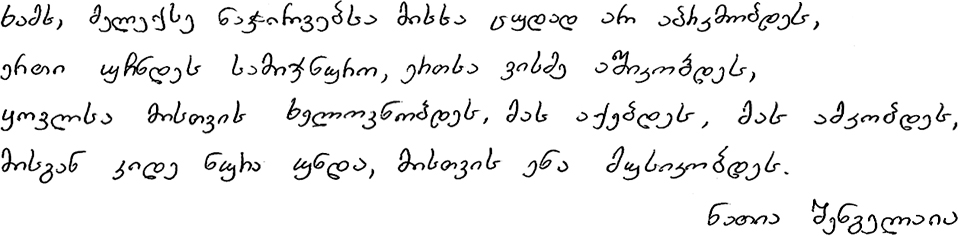 ხამს, მელექსე ნაჭირვებსა მისსა ცუდად არ აბრკმობდეს,
ერთი უჩნდეს სამიჯნურო, ერთსა ვისმე აშიკობდეს,
ყოვლსა მისთვის ხელოვნობდეს, მას აქებდეს, მას ამკობდეს,
მისგან კიდე ნურა უნდა, მისთვის ენა მუსიკობდეს.
ნათია შენგელაია